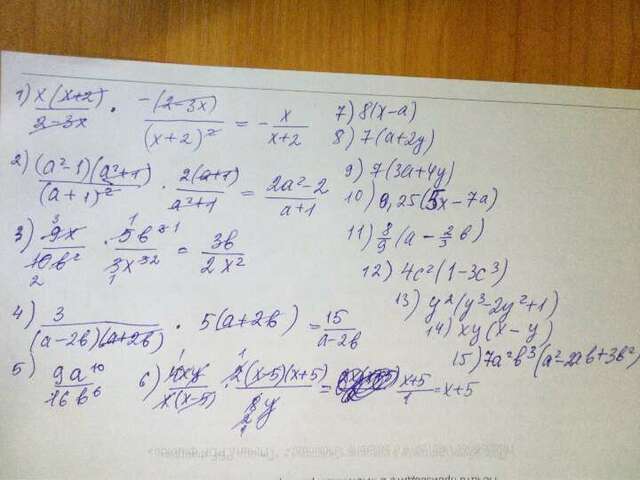 1) x(x+2)/2-3x · -(2-3x)/(x+2)² = - x/x+2
2) (a²-1)(a²+1)/(a+1)² · 2(a+1)/a²+1 = 2a²-2/a+1
3) 9x/10b² · 5b³/3x³ = 3b/2x²
4) 3/(a-2b)(a+2b) · 5(a+2b) = 15/a-2b
5) 9a¹⁰/16b⁶
6) 4xy/x(x-5) · 2(x-5)(x+5)/8y = x+5/1 = x+5
7) 8(x-a)
8) 7(a+2y)
9) 7(3a+4y)
10) 0,25(5x-7a)
11) 8/9(a-2/3b)
12) 4c²(1-3c³)
13) y²(y³-2y²+1)
14) xy(x-y)
15) 7a²b³(a²-2ab+3b²)